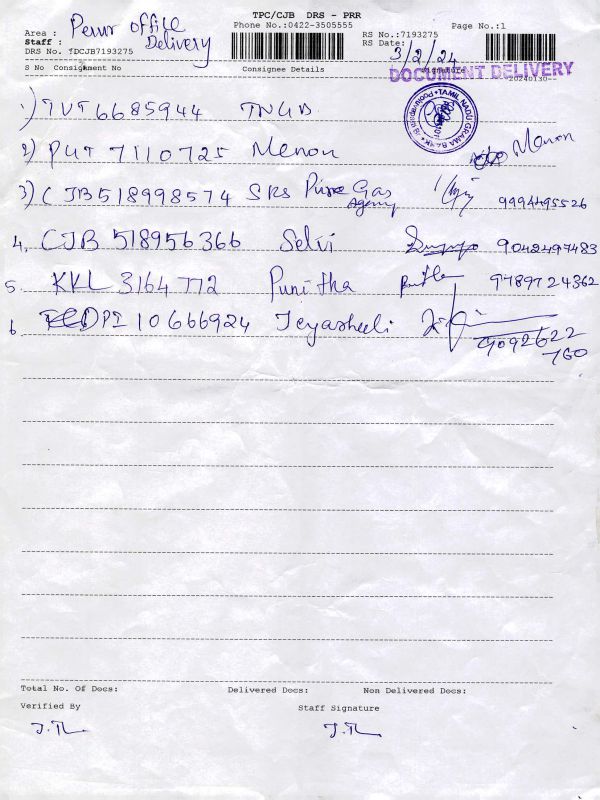 TPC/CJB DRS - PRR
Area : Perur office Delivery
Phone No.:0422-3505555
Page No.:1
Staff :
RS No.:7193275
DRS No. :DCJB7193275
RS Date: 3/2/24
S No Consignment No Consignee Details Signature
20240130
DOCUMENT DELIVERY
TAMIL NADU GRAMA BANK
1) TVT6685944 TNGB
2) PUT 7110725 Menon Menon
3) CJB518998574 SRS Pure Gas Agency 9994495526
4. CJB 518956366 Selvi 9042497483
5. KKL 3164772 Punitha 9789724362
6 DPI 10666924 Jeyasheeli 9092622760
Total No. Of Docs: Delivered Docs: Non Delivered Docs:
Verified By Staff Signature